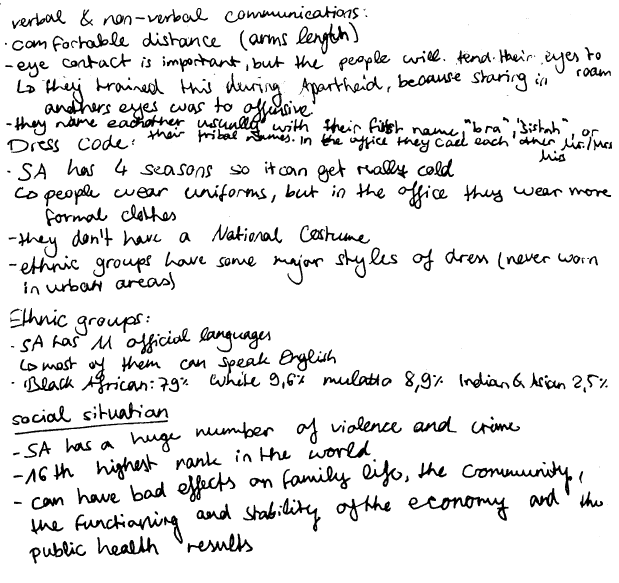 verbal & non-verbal communications:
· comfortable distance (arms length)
- eye contact is important, but the people will tend their eyes to roam
↳ they trained this during Apartheid, because staring in anothers eyes was to offensive
- they name eachother usually with their first name, "bra", "sistah", or their tribal names. In the office they call each other Mr./Mrs his
Dress Code:
· SA has 4 seasons so it can get really cold
↳ people wear uniforms, but in the office they wear more formal clothes
- they don't have a National Costume
- ethnic groups have some major styles of dress (never worn in urban areas)
Ethnic groups:
· SA has 11 official languages
↳ most of them can speak English
· Black African: 79% White 9,6% mulatto 8,9% Indian & Asian 2,5%
social situation
- SA has a huge number of violence and crime
- 16th highest rank in the world
- can have bad effects on family life, the community, the functioning and stability of the economy and the public health results